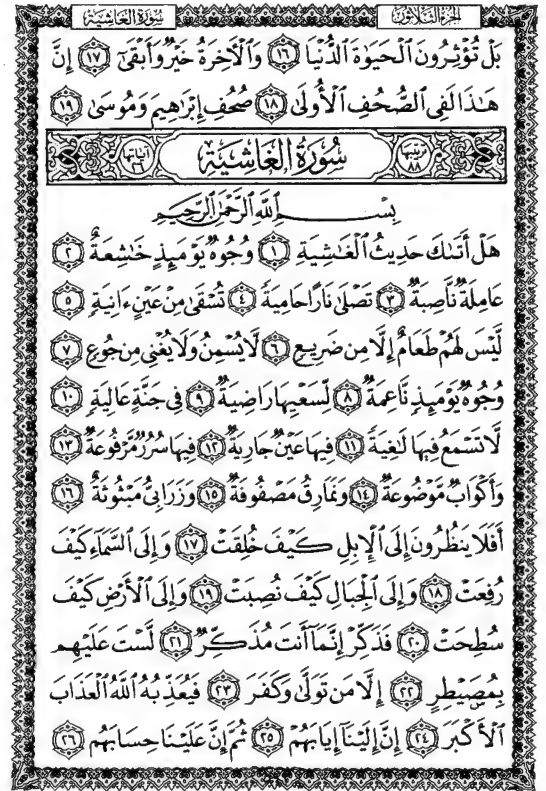 الجزء الثلاثون سورة الغاشية
بَلْ تُؤْثِرُونَ ٱلْحَيَوٰةَ ٱلدُّنْيَا ١٦ وَٱلْءَاخِرَةُ خَيْرٌ وَأَبْقَىٰٓ ١٧ إِنَّ
هَـٰذَا لَفِى ٱلصُّحُفِ ٱلْأُولَىٰ ١٨ صُحُفِ إِبْرَٰهِيمَ وَمُوسَىٰ ١٩
ترتيبها ٨٨ سُورَةُ الغَاشِيَة آياتها ٢٦
بِسْمِ ٱللَّهِ ٱلرَّحْمَـٰنِ ٱلرَّحِيمِ
هَلْ أَتَىٰكَ حَدِيثُ ٱلْغَـٰشِيَةِ ١ وُجُوهٌ يَوْمَئِذٍ خَـٰشِعَةٌ ٢
عَامِلَةٌ نَّاصِبَةٌ ٣ تَصْلَىٰ نَارًا حَامِيَةً ٤ تُسْقَىٰ مِنْ عَيْنٍ ءَانِيَةٍ ٥
لَّيْسَ لَهُمْ طَعَامٌ إِلَّا مِن ضَرِيعٍ ٦ لَّا يُسْمِنُ وَلَا يُغْنِى مِن جُوعٍ ٧
وُجُوهٌ يَوْمَئِذٍ نَّاعِمَةٌ ٨ لِّسَعْيِهَا رَاضِيَةٌ ٩ فِى جَنَّةٍ عَالِيَةٍ ١٠
لَّا تَسْمَعُ فِيهَا لَـٰغِيَةً ١١ فِيهَا عَيْنٌ جَارِيَةٌ ١٢ فِيهَا سُرُرٌ مَّرْفُوعَةٌ ١٣
وَأَكْوَابٌ مَّوْضُوعَةٌ ١٤ وَنَمَارِقُ مَصْفُوفَةٌ ١٥ وَزَرَابِىُّ مَبْثُوثَةٌ ١٦
أَفَلَا يَنظُرُونَ إِلَى ٱلْإِبِلِ كَيْفَ خُلِقَتْ ١٧ وَإِلَى ٱلسَّمَآءِ كَيْفَ
رُفِعَتْ ١٨ وَإِلَى ٱلْجِبَالِ كَيْفَ نُصِبَتْ ١٩ وَإِلَى ٱلْأَرْضِ كَيْفَ
سُطِحَتْ ٢٠ فَذَكِّرْ إِنَّمَآ أَنتَ مُذَكِّرٌ ٢١ لَّسْتَ عَلَيْهِم
بِمُصَيْطِرٍ ٢٢ إِلَّا مَن تَوَلَّىٰ وَكَفَرَ ٢٣ فَيُعَذِّبُهُ ٱللَّهُ ٱلْعَذَابَ
ٱلْأَكْبَرَ ٢٤ إِنَّ إِلَيْنَآ إِيَابَهُمْ ٢٥ ثُمَّ إِنَّ عَلَيْنَا حِسَابَهُم ٢٦